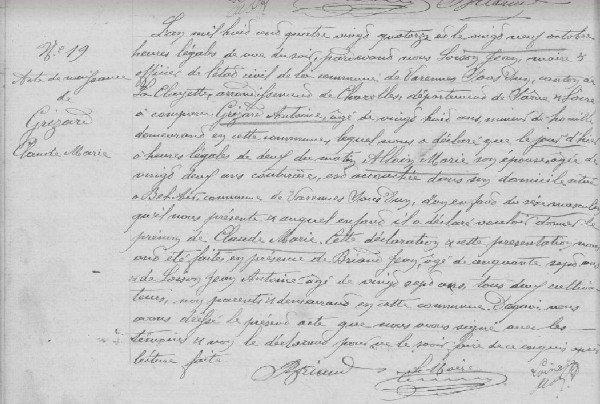 N° 19
Acte de naissance
de
Grézard
Claude Marie
L'an mil huit cent quatre vingt quatorze et le vingt neuf octobre
heures légales de du soir, par devant nous Loison Jean, maire et
officier de l'état civil de la commune de Varennes sous Dun, canton de
La Clayette, arrondissement de Charolles, département de Saône & Loire
a comparu Grézard Antoine, âgé de vingt huit ans,
demeurant en cette commune, lequel nous a déclaré que le jour d'hier
à heures légales de deux du matin, Marie son épouse âgée de
vingt deux ans couturière, est accouchée dans son domicile situé
à commune de Varennes sous Dun, d'un enfant du sexe masculin
qu'il nous présente et auquel enfant il a déclaré vouloir donner le
prénom de Claude Marie. Cette déclaration et cette présentation nous
ont été faites en présence de Briand Jean, âgé de cinquante sept ans
et de Loison Jean Antoine âgé de vingt sept ans, tous deux cultiva-
teurs, non parents et demeurant en cette commune. D'après nous
avons dressé le présent acte que nous avons signé avec les
témoins et non le déclarant pour ne le savoir faire de ce enquis après
lecture faite
Briand Le Maire